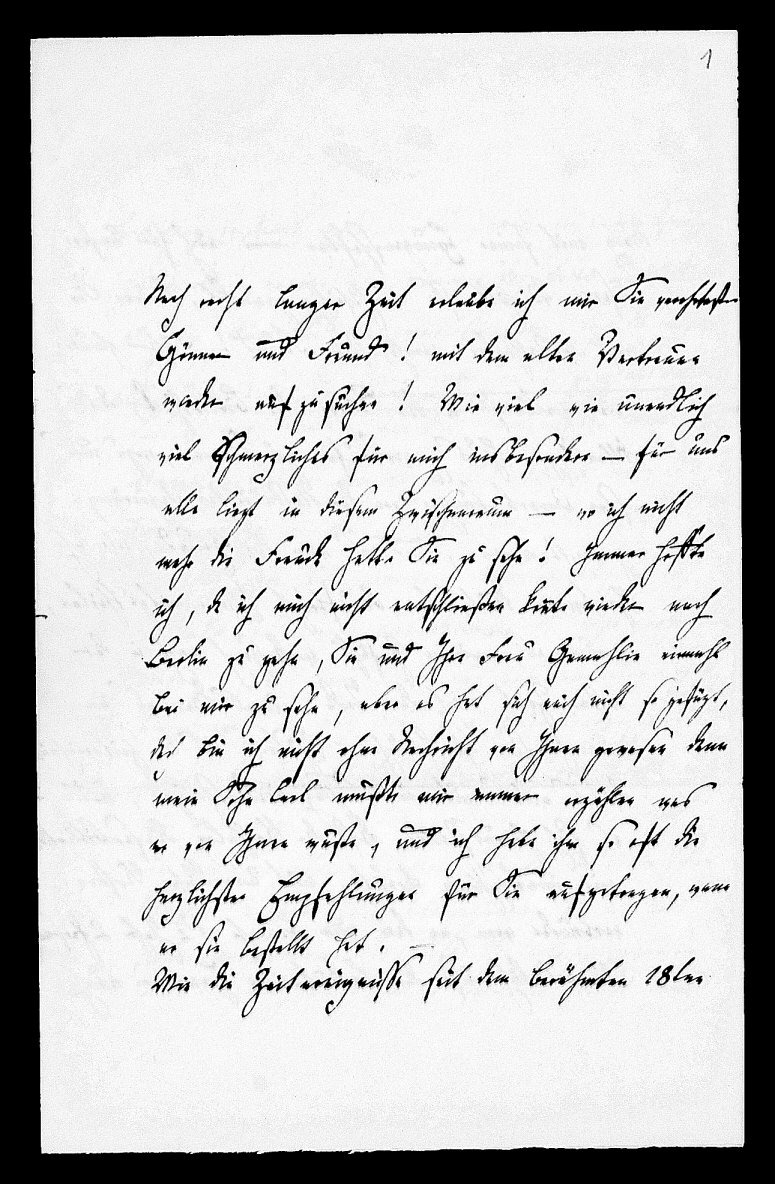 1
Nach recht langer Zeit erlaube ich mir Sie verehrtester
Gönner und Freund! mit dem alten Vertrauen
wieder aufzusuchen! Wie viel wie unendlich
viel Schmerzliches für mich insbesondere — für uns
alle liegt in diesem Zwischenraum — wo ich nicht
mehr die Freude hatte Sie zu sehn! Immer hoffte
ich, da ich mich nicht entschließen konte wieder nach
Berlin zu gehn, Sie und Ihre Frau Gemahlin einmahl
bei mir zu sehn, aber es hat sich auch nicht so gefügt,
doch bin ich nicht ohne Nachricht von Ihnen gewesen denn
mein Sohn Carl mußte mir immer erzählen was
er von Ihnen wußte, und ich habe ihm so oft die
herzlichsten Empfehlungen für Sie aufgetragen, wenn
er sie bestellt hat. —
Wie die Zeitereignisse seit dem berühmten 18ten